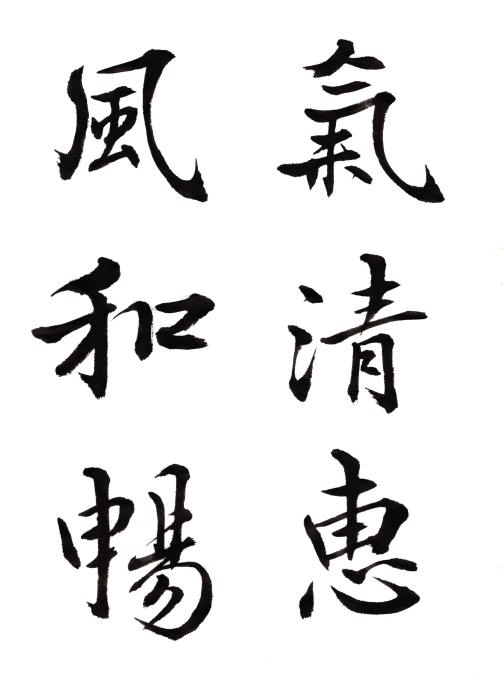 氣清惠
風和暢